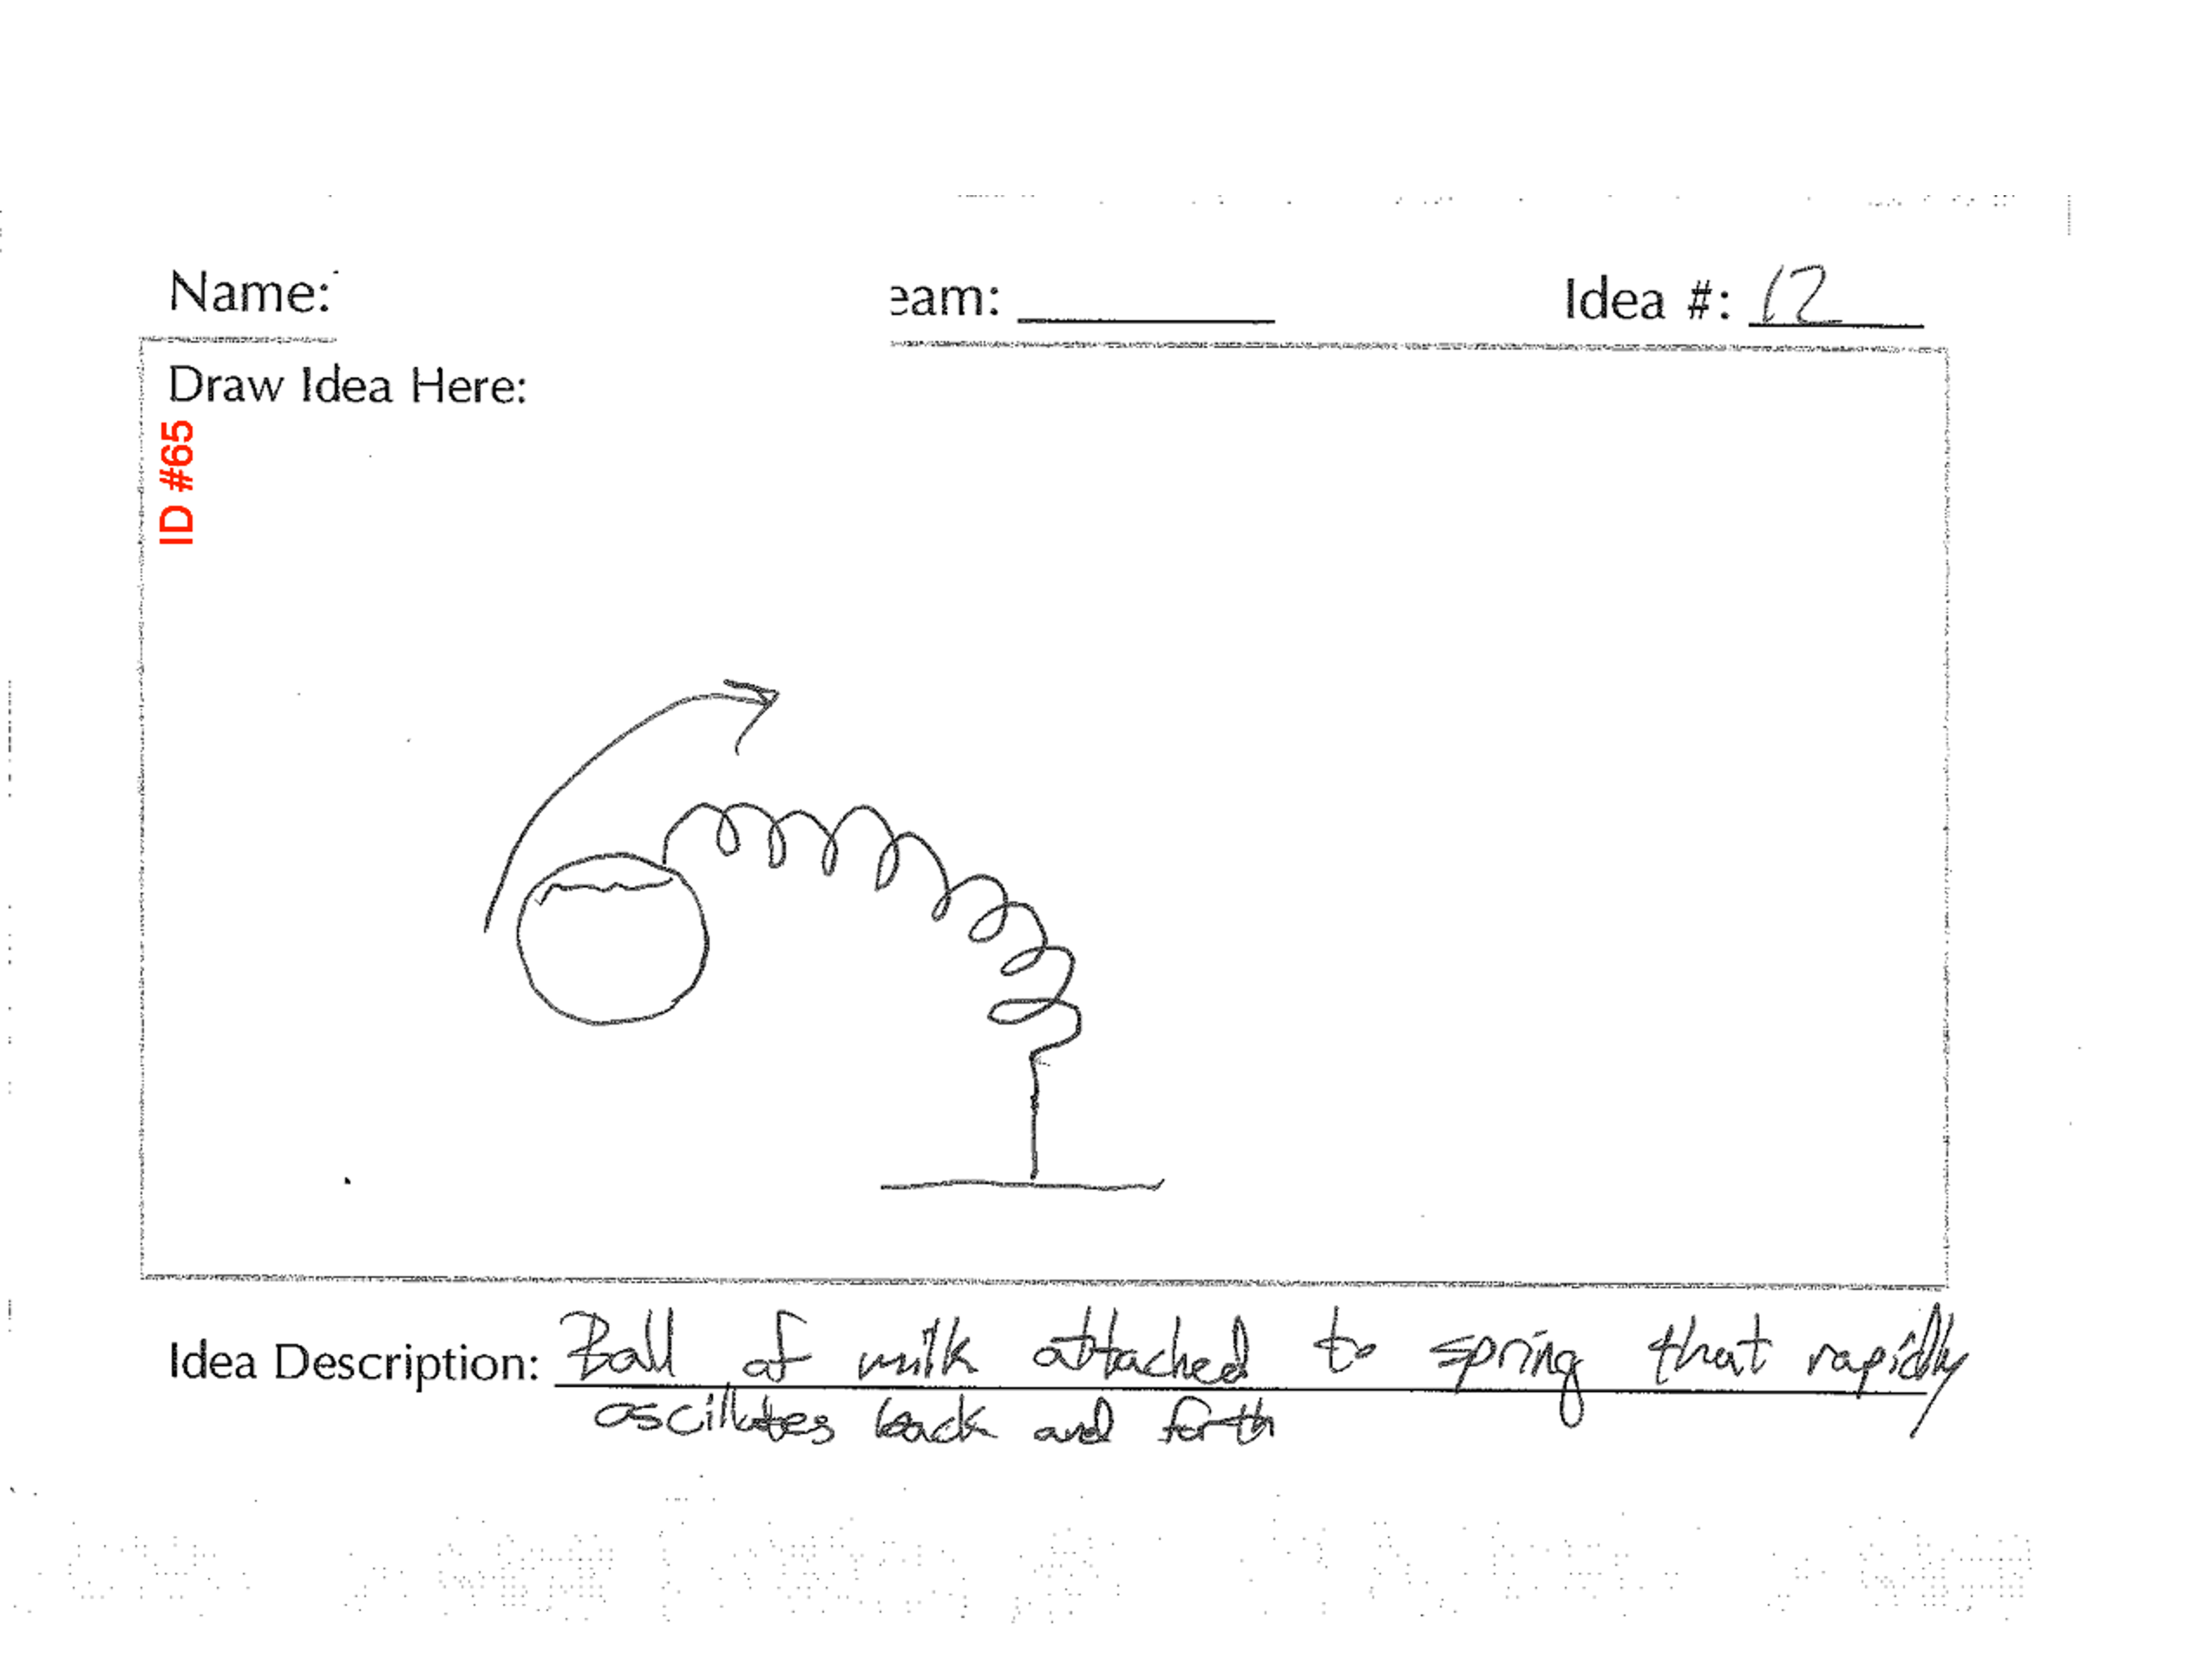 Name:
eam:
Idea #: 12
Draw Idea Here:
ID #65
Idea Description: Ball of milk attached to spring that rapidly
oscillates back and forth